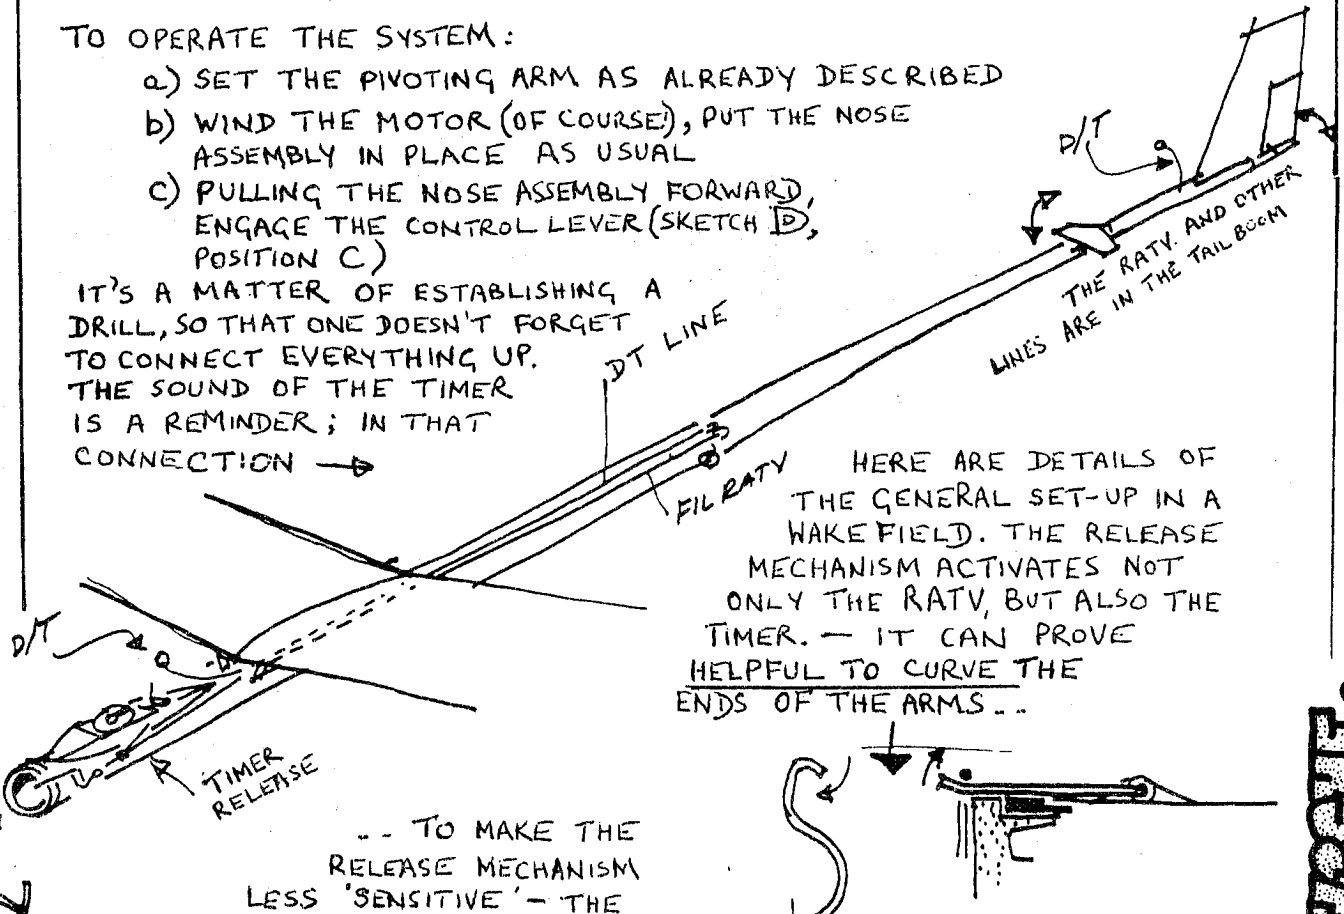 TO OPERATE THE SYSTEM:
a) SET THE PIVOTING ARM AS ALREADY DESCRIBED
b) WIND THE MOTOR (OF COURSE), PUT THE NOSE
ASSEMBLY IN PLACE AS USUAL
c) PULLING THE NOSE ASSEMBLY FORWARD,
ENGAGE THE CONTROL LEVER (SKETCH D,
POSITION C)
IT'S A MATTER OF ESTABLISHING A
DRILL, SO THAT ONE DOESN'T FORGET
TO CONNECT EVERYTHING UP.
THE SOUND OF THE TIMER
IS A REMINDER; IN THAT
CONNECTION
D/T
THE RATV. AND OTHER
LINES ARE IN THE TAIL BOOM
DT LINE
FIL RATV
HERE ARE DETAILS OF
THE GENERAL SET-UP IN A
WAKEFIELD. THE RELEASE
MECHANISM ACTIVATES NOT
ONLY THE RATV, BUT ALSO THE
TIMER. — IT CAN PROVE
HELPFUL TO CURVE THE
ENDS OF THE ARMS...
D/T
TIMER
RELEASE
... TO MAKE THE
RELEASE MECHANISM
LESS 'SENSITIVE' - THE